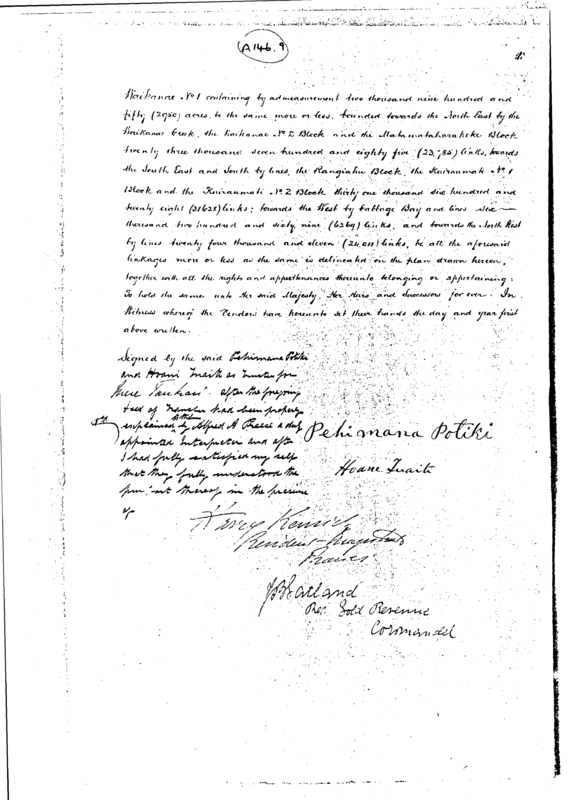 (A146.9
Waikanae No 1 containing by admeasurement two thousand nine hundred and
fifty (2950) acres, be the same more or less. bounded towards the North East by the
Waikanae Creek, the Waikanae No 2 Block and the Matamataharakeke Block
twenty three thousand seven hundred and eighty five (23,785) links, towards
the South East and South by lines, the Rangiahu Block, the Kuiraumati No 1
Block and the Kuiraumati No 2 Block thirty one thousand six hundred and
twenty eight (31628) links; towards the West by Cabbage Bay and lines six
thousand two hundred and sixty nine (6269) links, and towards the North West
by lines twenty four thousand and eleven (24,011) links, be all the aforesaid
linkages more or less as the same is delineated on the plan drawn hereon,
together with all the rights and appurtenances thereunto belonging or appertaining:
To hold the same unto Her said Majesty, Her Heirs and Successors for ever. In
Witness whereof the Vendors have hereunto set their hands the day and year first
above written.
Signed by the said Pehimana Potiki
and Hoani Tuaiti as Trustee for
after the foregoing
deed of Transfer had been properly
explained to them by Alfred A Preece a duly
appointed Interpreter and after
I had fully satisfied my self
that they fully understood the
thereof in the presence
of
Pehimana Potiki
Hoane Tuaiti
Harry Kenrick
Resident Magistrate
Thames
Gatland
Rec. Gold Revenue
Coromandel